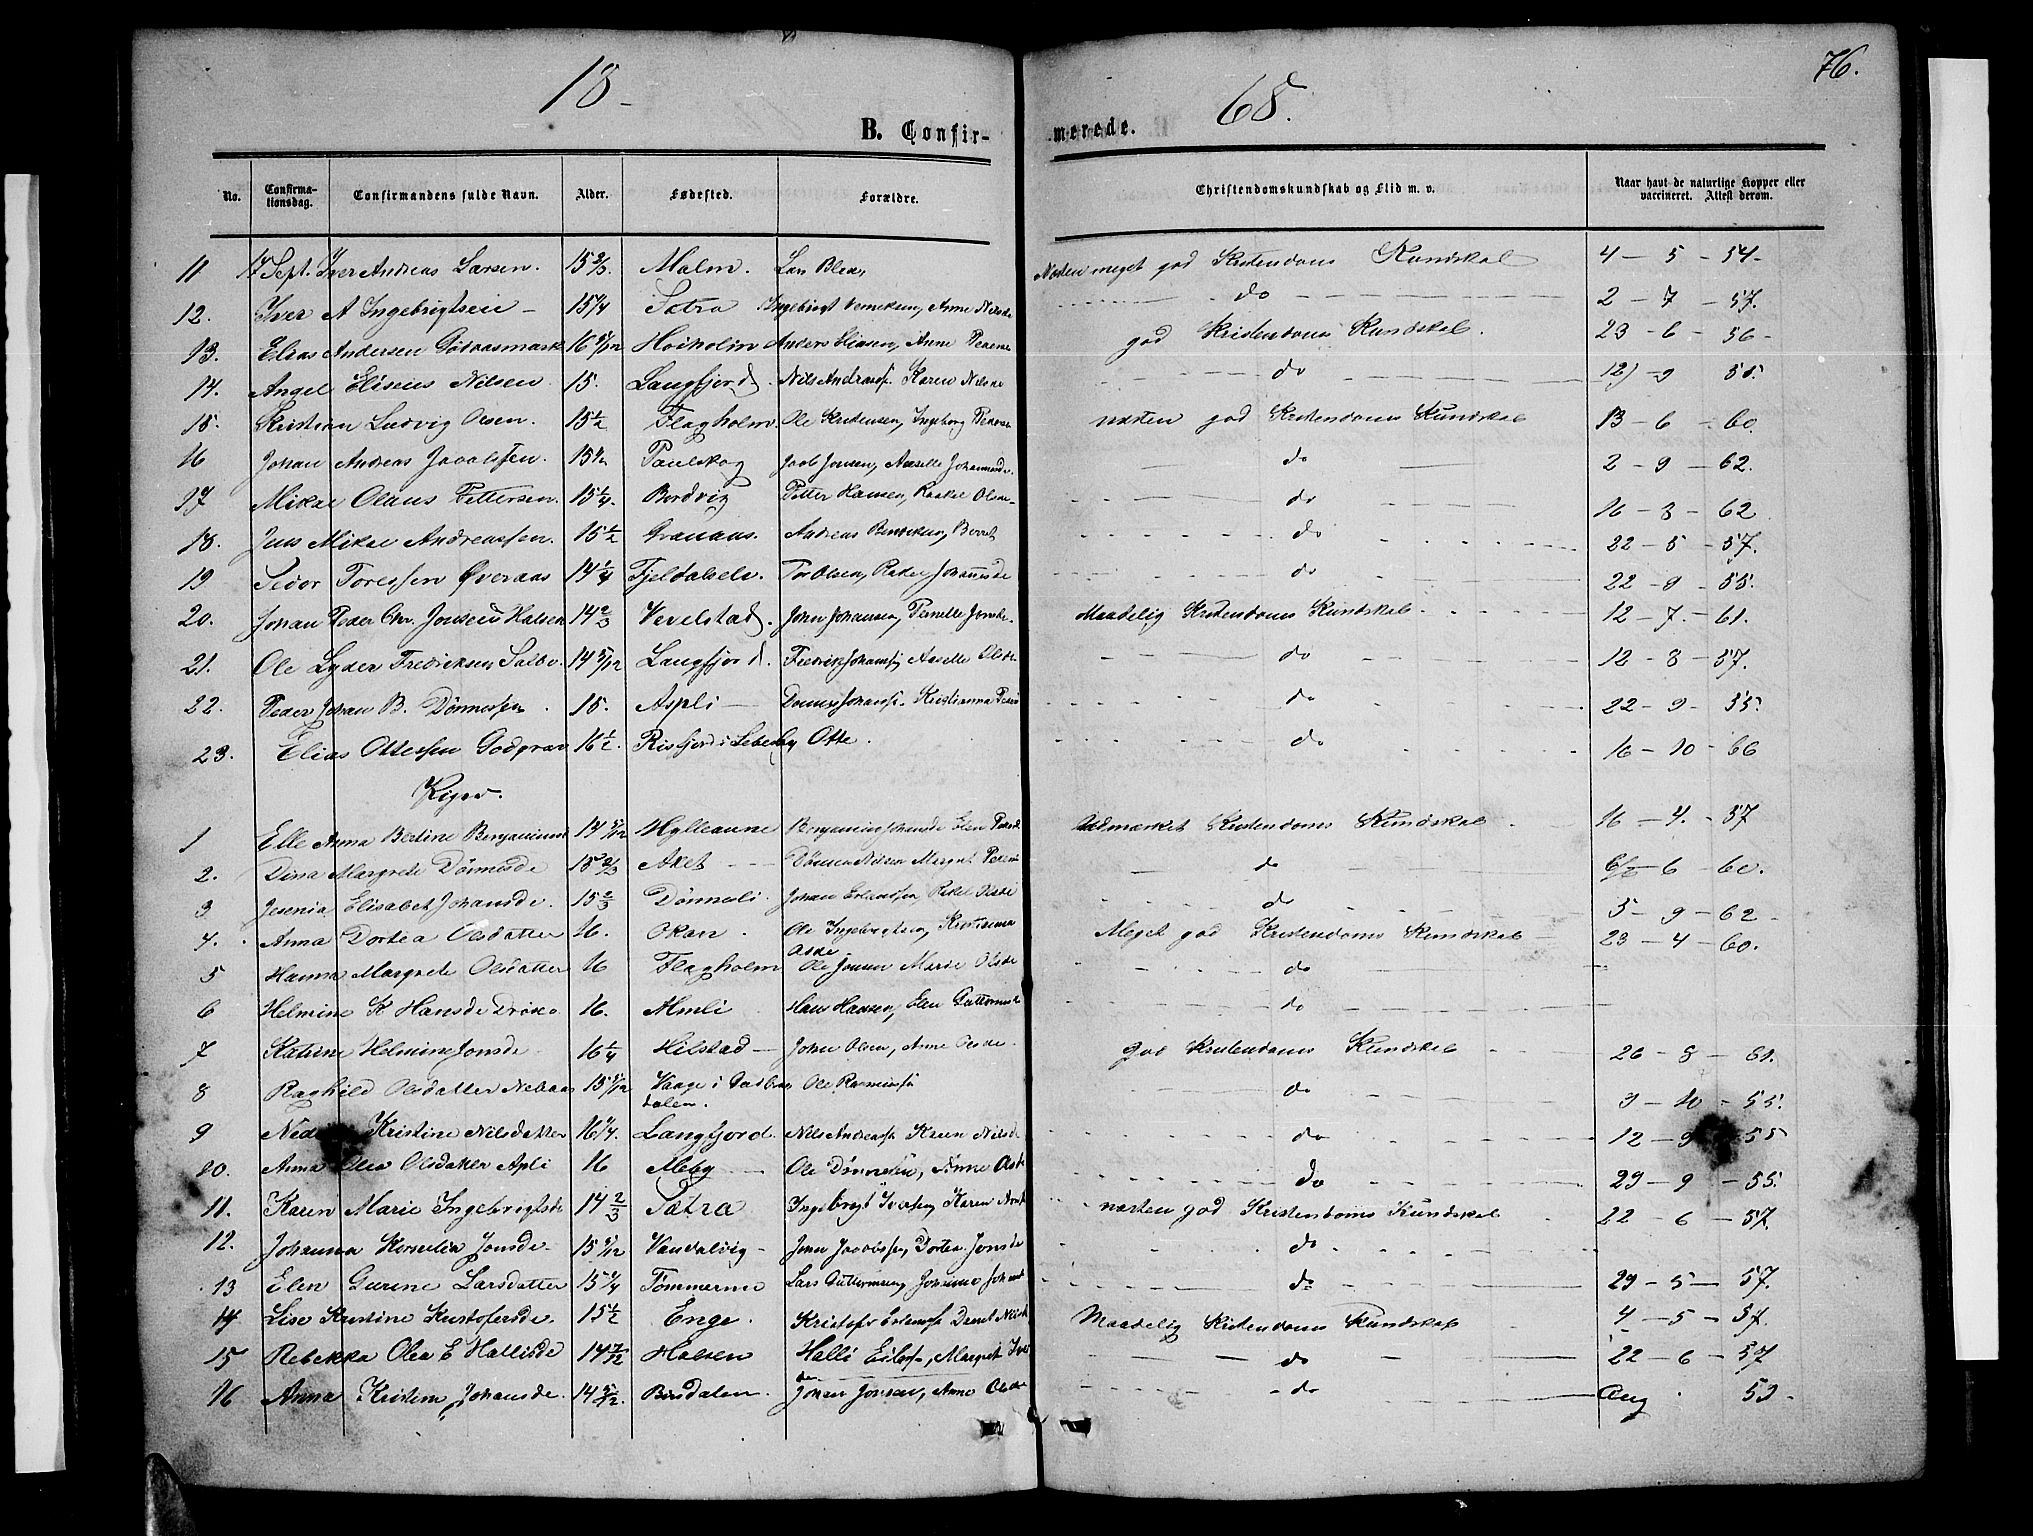 18 - 68.
76.
B. Confir- merede.
No. Confirma-tionsdag. Confirmandens fulde Navn. Alder. Fødested. Forældre. Christendomskundskab og Flid m. v. Naar havt de naturlige Kopper eller vaccineret. Attest derom.
11 17 Sept. Iver Andreas Larsen. 15 2/3 Malm. Lars Næsten meget god Kristendoms Kundskab 4 - 5 - 54.
12. Iver A Ingebrigtsen - 15 1/4 Sætra Ingebrigt Anne Nilsde do 2 - 7 - 57.
13. Elias Andersen Godaasmark 16 Horholm Anders Eliasen, Anne Pederse god Kristendoms Kundskab. 23 - 6 - 56 -
14. Angel Eliseus Nilsen 15. Langfjord. Nils Andreass. Karen Nilsde do 12 - 9 55.
15. Kristian Ludvig Olsen. 15 1/2 Flagholm Ole Kristensen, Ingeborg Pederse næsten god Kristendoms Kundskab 13 - 6 - 60.
16 Johan Andreas Jacobssen. 15 1/2 Paulskog Jacob Jonsen, Johannesde. do 2 - 9 - 62.
17 Mikal Olaus Pettersen. 15 1/4 Bordvig Petter Hansen, Raakel Olsde do 16 - 8 - 62
18. Jens Mikal Andreassen. 15 1/2 Granaas. Andreas Bendiksen, Berret do 22 - 5 - 57.
19 Sedor Toressen Øveraas 14 1/4 Fjeldalselv. Tor Olsen, Johannesde do 22 - 9 - 55.
20. Johan Peder Chr. Jonsen Halsen 14 2/3 Vevelstad. John Johansen, Pernelle Jonsde. Maadelig Kristendoms Kundskab 12 - 7 - 61.
21. Ole Lyder Fredriksen 14 5/12 Langfjord. Fredrik Johanss, Olsde do 12 - 8 - 57.
22. Peder Johan B. Dønnessen 15. Aspli Dønnes Johanss. Kristianna do 22 - 9 - 55.
23. Elias Ottessen 16 1/2. Risfjord i Lebesby Otte. do 16 - 10 - 66
Piger.
1 Elle Anna Bertine Benjaminsd 14 Hylleaune Benjamin Johansde Elen Pedersd Udmærket Kristendoms Kundskab 16 - 4. - 57
2. Dina Margrete Dønnesde 15 2/3 Aket Dønnes Nilsen Margret do 6 - 60.
3 Jesenia Elisabet Johansde. 15 2/3 Dønnesli. Johan Erlandsen Olsde do 5 - 9 - 62
4. Anna Dortea Olsdatter 16. Okan. Ole Ingebrigtsen, Kristianna Olsde Meget god Kristendoms Kundskab 23 - 4 - 60.
5 Hanna Margrete Olsdatter 16 Flagholm Ole Jonsen Marie Olsde do
6 Helmine K Hansde 16. Amli Hans Hansen, Elen Guttormsde do
7 Katrine Helmine Jonsde 16 1/4 Hilstad John Olsen, Anne Olsde. god Kristendoms Kundskab 26 - 8 - 61.
8 Raghild Olsdatter Nebaas 15 Vaage i Gudbrandsdalen. Ole Rasmuss do 9 - 10 - 55.
9 Kristine Nilsdatter 16 1/4. Langfjord. Nils Andreass Karen Nilsde do 12 - 9 - 55
10. Anna Olea Olsdatter Apli 16 Meby Ole Dønnessen, Anne Olsde do 29 - 9 - 55.
11. Karen Marie Ingebrigtsde 14 2/3 Sætra Ingebrigt Iversen, Karen næsten god Kristendoms Kundskab 22 - 6 - 57
12. Johanna Kornelia Jonsde 15 Vandalvig Jon Jacobssen, Dortea Jonsde do
13 Elen Gurine Larsdatter 15 1/4 Tømmermo Lars Guttormsen, do 29 - 5 - 57.
14 Lise Kristine Kristofersde. 15 1/2 Enge. Kristofer Erlands Maadelig Kristendoms Kundskab 4 - 5 - 57.
15 Rebekka Olea E Hallisde 14 7/12 Halsen Halli Eilers, Margret Iversde do 22 - 6 - 57
16 Anna Kristine Johansde. 14 Bindalen. Johan Jonsen, Anne Olsde do Aug. 59 -